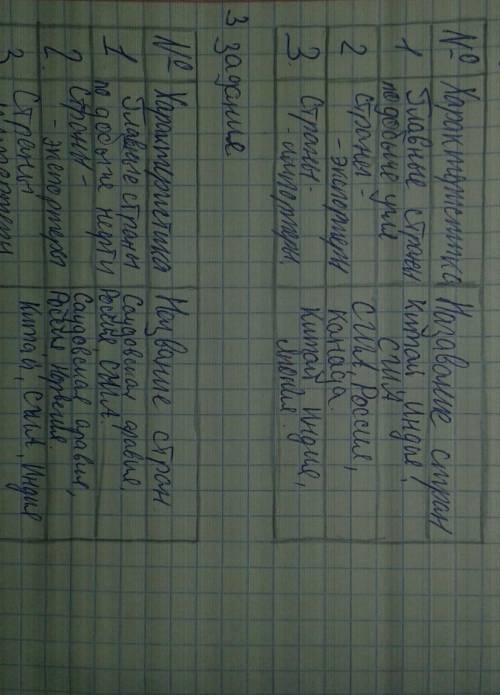 № Характеристика Название стран
1 Главные страны Китай, Индия,
по добыче угля США
2 Страны- США, Россия,
-экспортеры Канада.
3. Страны- Китай, Индия,
-импортеры. Япония.
3 задание
№ Характеристика Название стран
1 Главные страны Саудовская аравия,
по добыче нефти Россия США.
2. Страны- Саудовская аравия,
-экспортеры Россия Норвегия.
3 Страны Китай, США, Индия
импортеры